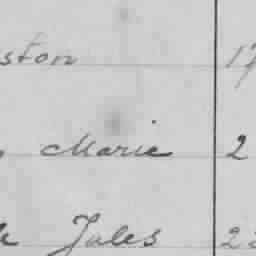 ston 17
, Marie 2
Jules 22